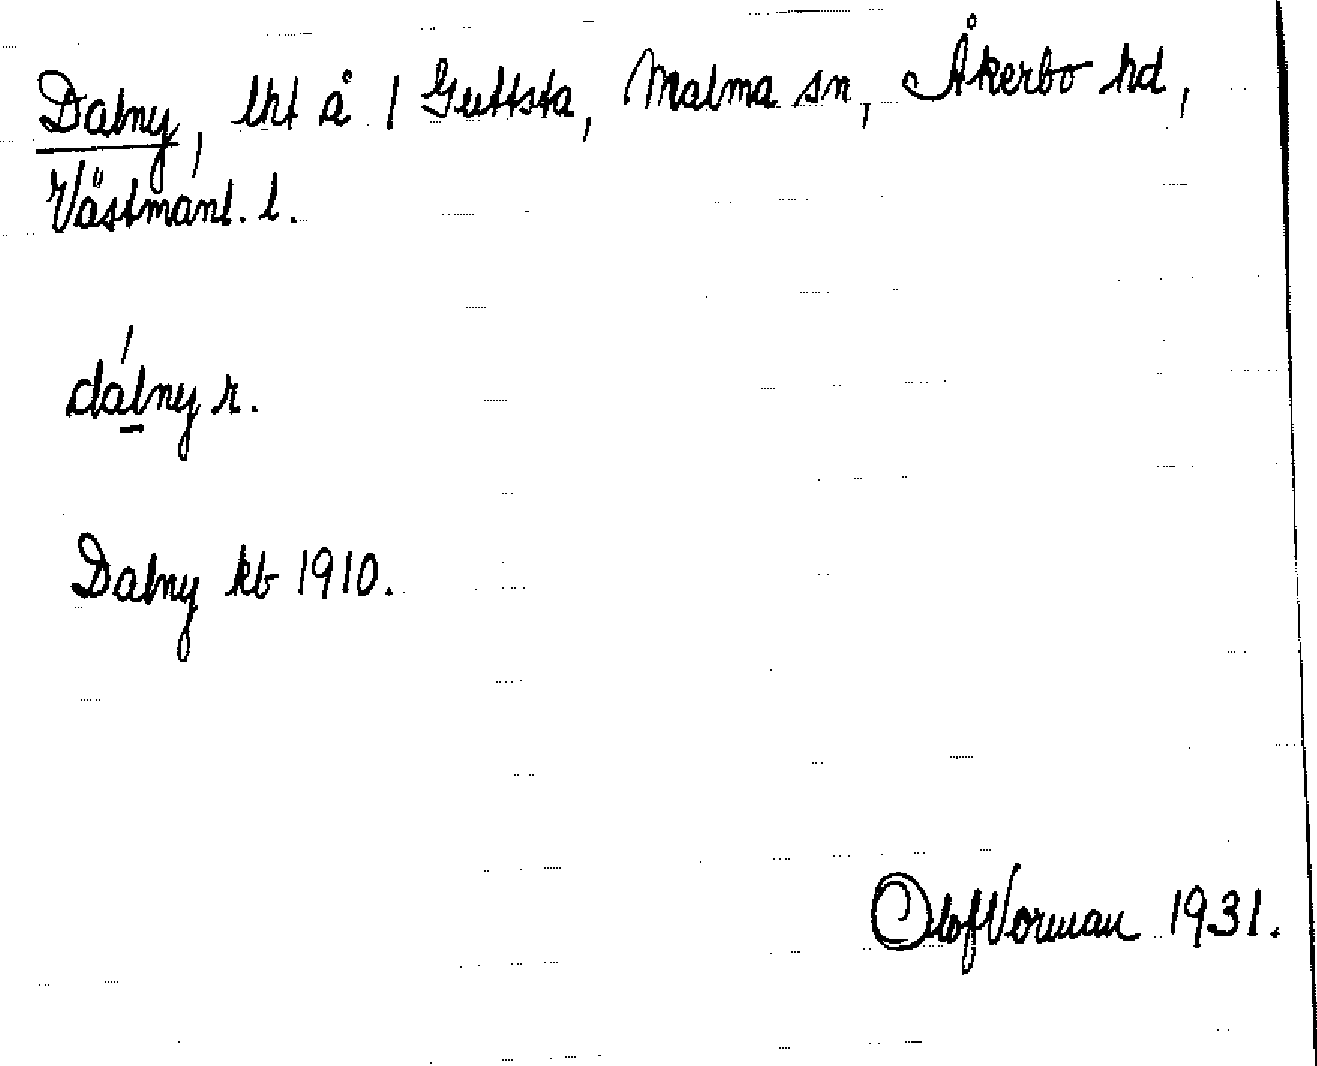 Dalny, lht å 1 Guttsta, Malma sn, Åkerbo hd,
Västmanl. l.
dálny r.
Dalny kb 1910.
Olof Vorman 1931.